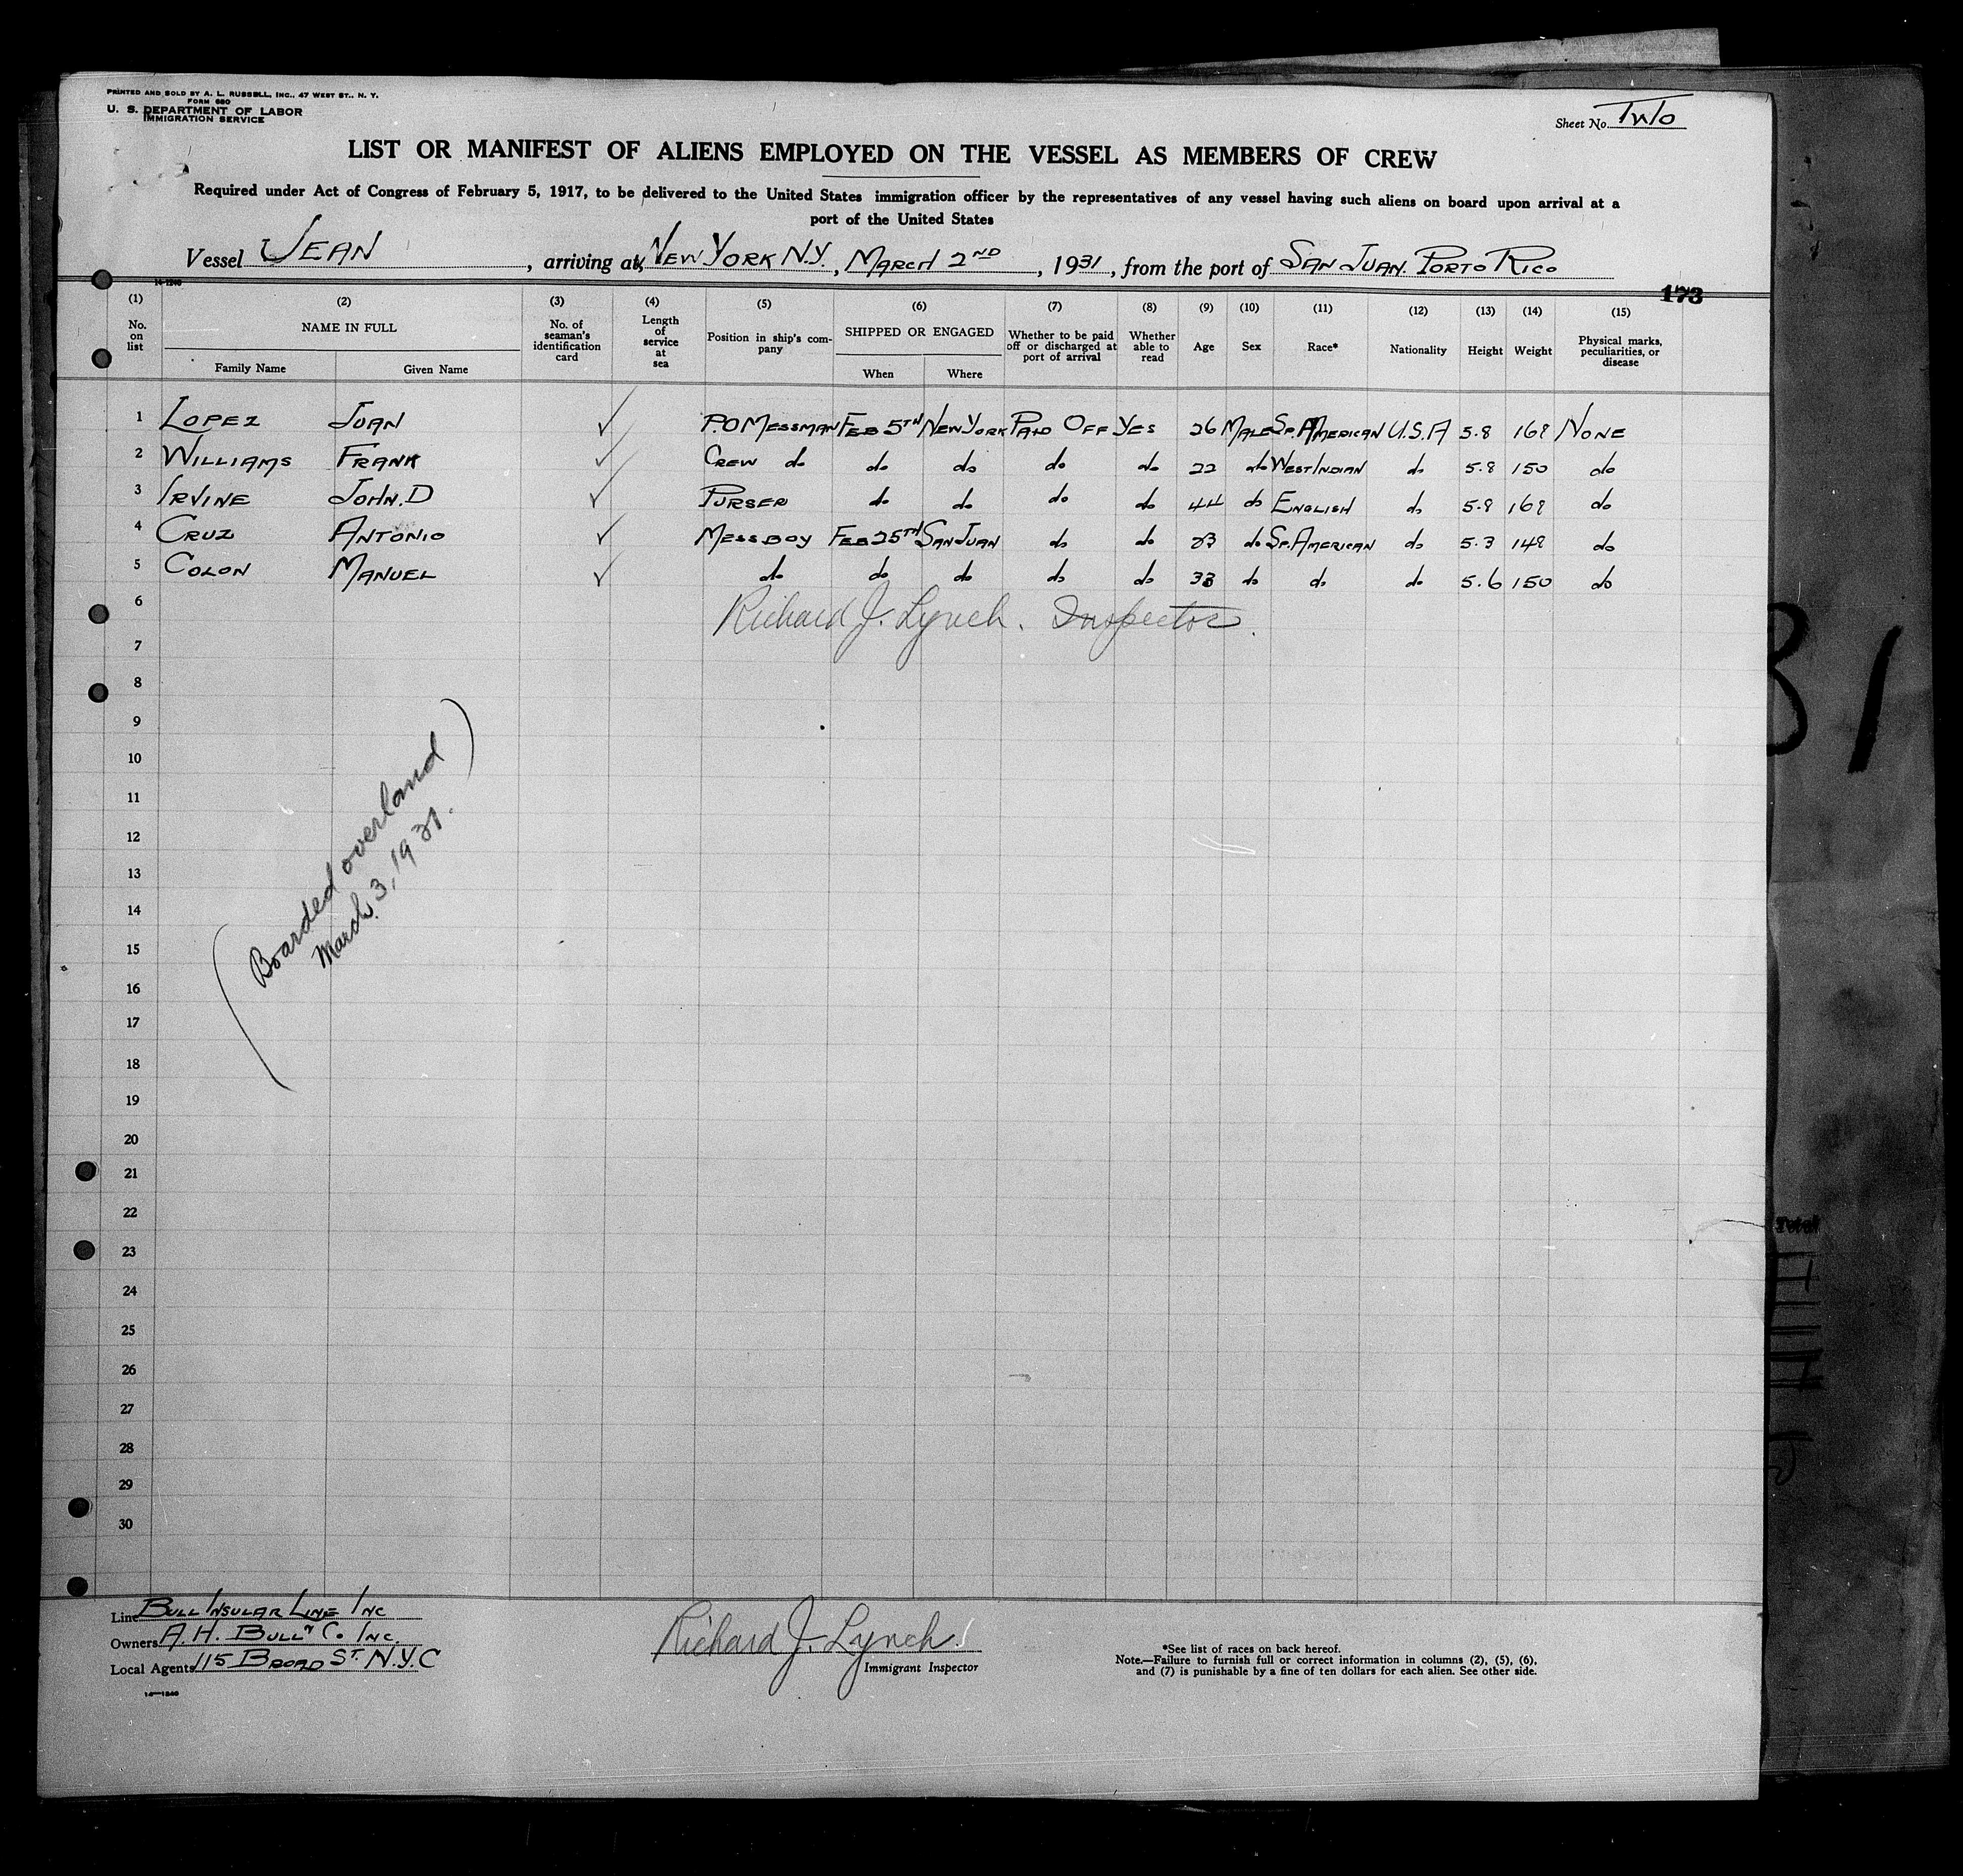 PRINTED AND SOLD BY A. L. RUSSELL, INC., 47 WEST ST., N. Y.
FORM 680
U. S. DEPARTMENT OF LABOR
IMMIGRATION SERVICE
Sheet No. Two
LIST OR MANIFEST OF ALIENS EMPLOYED ON THE VESSEL AS MEMBERS OF CREW
Required under Act of Congress of February 5, 1917, to be delivered to the United States immigration officer by the representatives of any vessel having such aliens on board upon arrival at a
port of the United States
Vessel JEAN, arriving at NEW YORK N.Y., MARCH 2ND, 1931, from the port of SAN JUAN. PORTO RICO
14-1240
173
(1) (2) (3) (4) (5) (6) (7) (8) (9) (10) (11) (12) (13) (14) (15)
No. on list NAME IN FULL No. of seaman's identification card Length of service at sea Position in ship's company SHIPPED OR ENGAGED Whether to be paid off or discharged at port of arrival Whether able to read Age Sex Race* Nationality Height Weight Physical marks, peculiarities, or disease
Family Name Given Name When Where
1 LOPEZ JUAN ✓ P.O MESSMAN FEB 5TH NEW YORK PAID OFF YES 26 MALE SP. AMERICAN U.S.A 5.8 168 NONE
2 WILLIAMS FRANK ✓ CREW do do do do do 22 do WEST INDIAN do 5.8 150 do
3 IRVINE JOHN. D ✓ PURSER do do do do 44 do ENGLISH do 5.8 168 do
4 CRUZ ANTONIO ✓ MESSBOY FEB 25TH SAN JUAN do do 23 do SP. AMERICAN do 5.3 148 do
5 COLON MANUEL ✓ do do do do do 33 do do do 5.6 150 do
6 Richard J. Lynch. Inspector.
7
8
9
10
11
12
13
14
15
16
17
18
19
20
21
22
23
24
25
26
27
28
29
30
(Boarded overland)
March 3, 1931.
Line BULL INSULAR LINE INC
Owners A. H. BULL & CO. INC.
Local Agents 115 BROAD ST. N.Y.C
14-1240
Richard J. Lynch
Immigrant Inspector
*See list of races on back hereof.
Note.—Failure to furnish full or correct information in columns (2), (5), (6),
and (7) is punishable by a fine of ten dollars for each alien. See other side.
31
Total